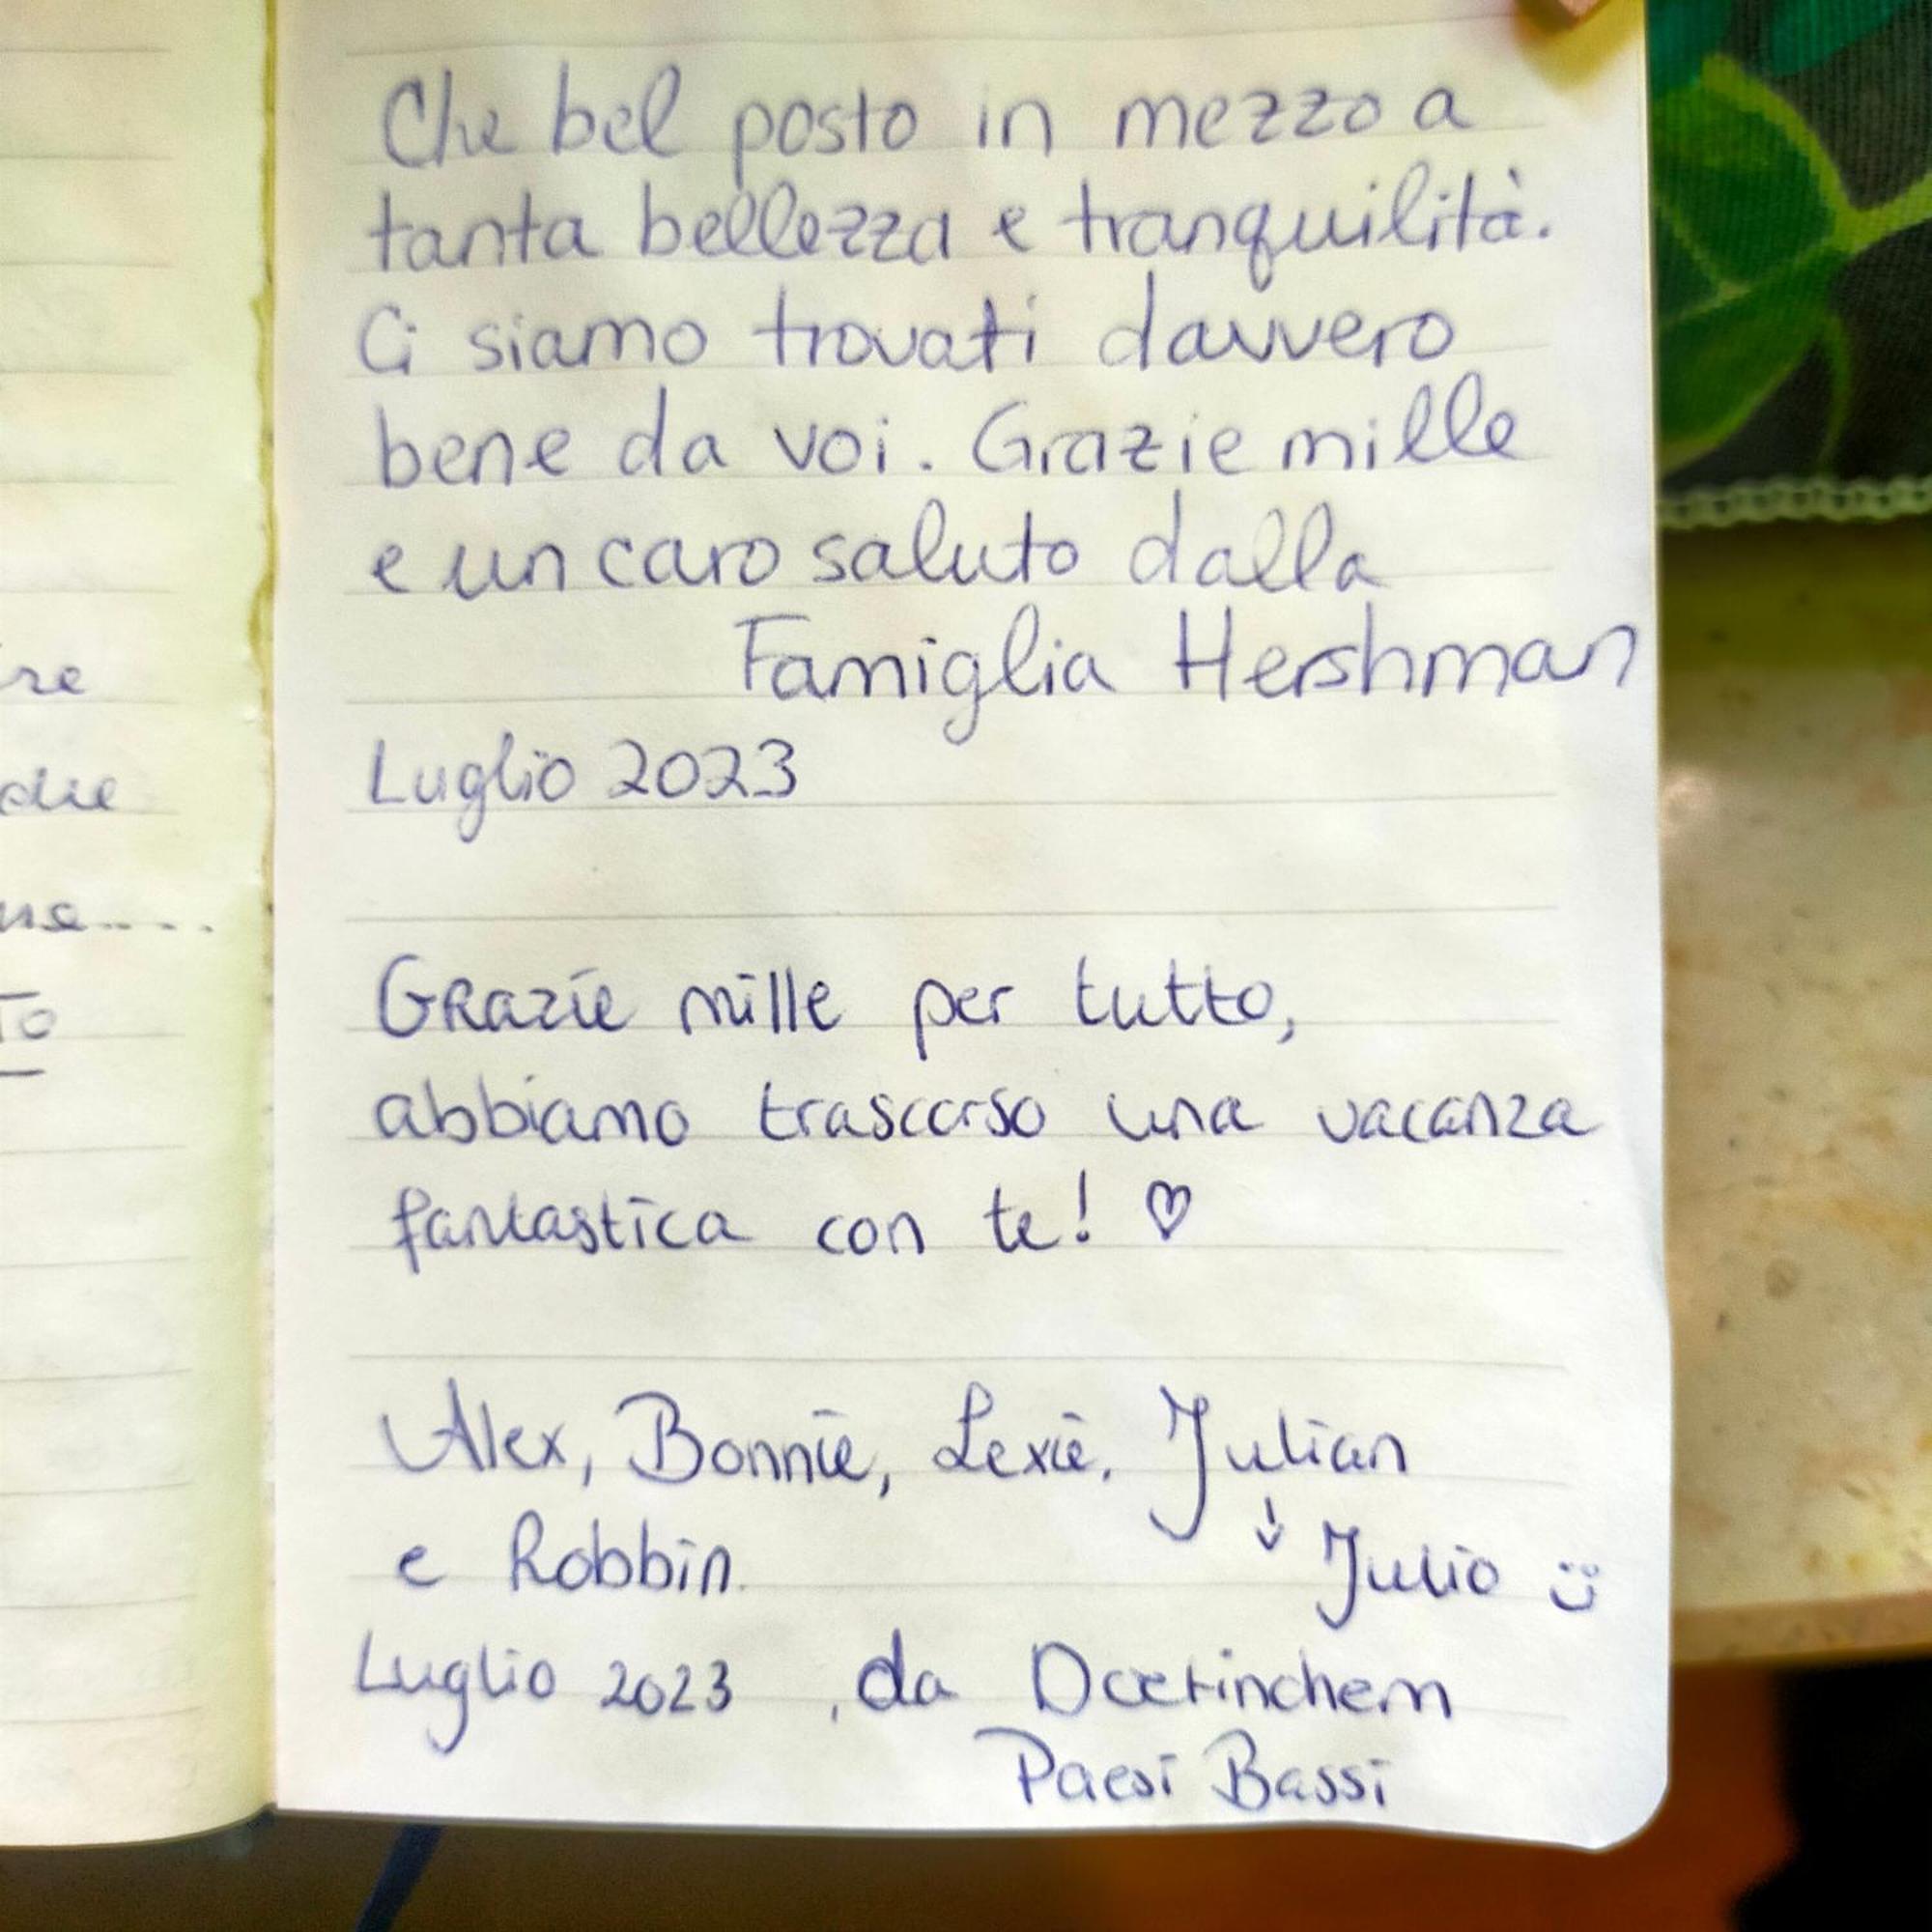 Che bel posto in mezzo a
tanta bellezza e tranquilità.
Ci siamo trovati davvero
bene da voi. Grazie mille
e un caro saluto dalla
Famiglia Hershman
Luglio 2023
Grazie mille per tutto,
abbiamo trascorso una vacanza
fantastica con te! ♡
Alex, Bonnie, Lexie, Julian
e Robbin. ↓ Julio :)
Luglio 2023, da Doetinchem
Paesi Bassi